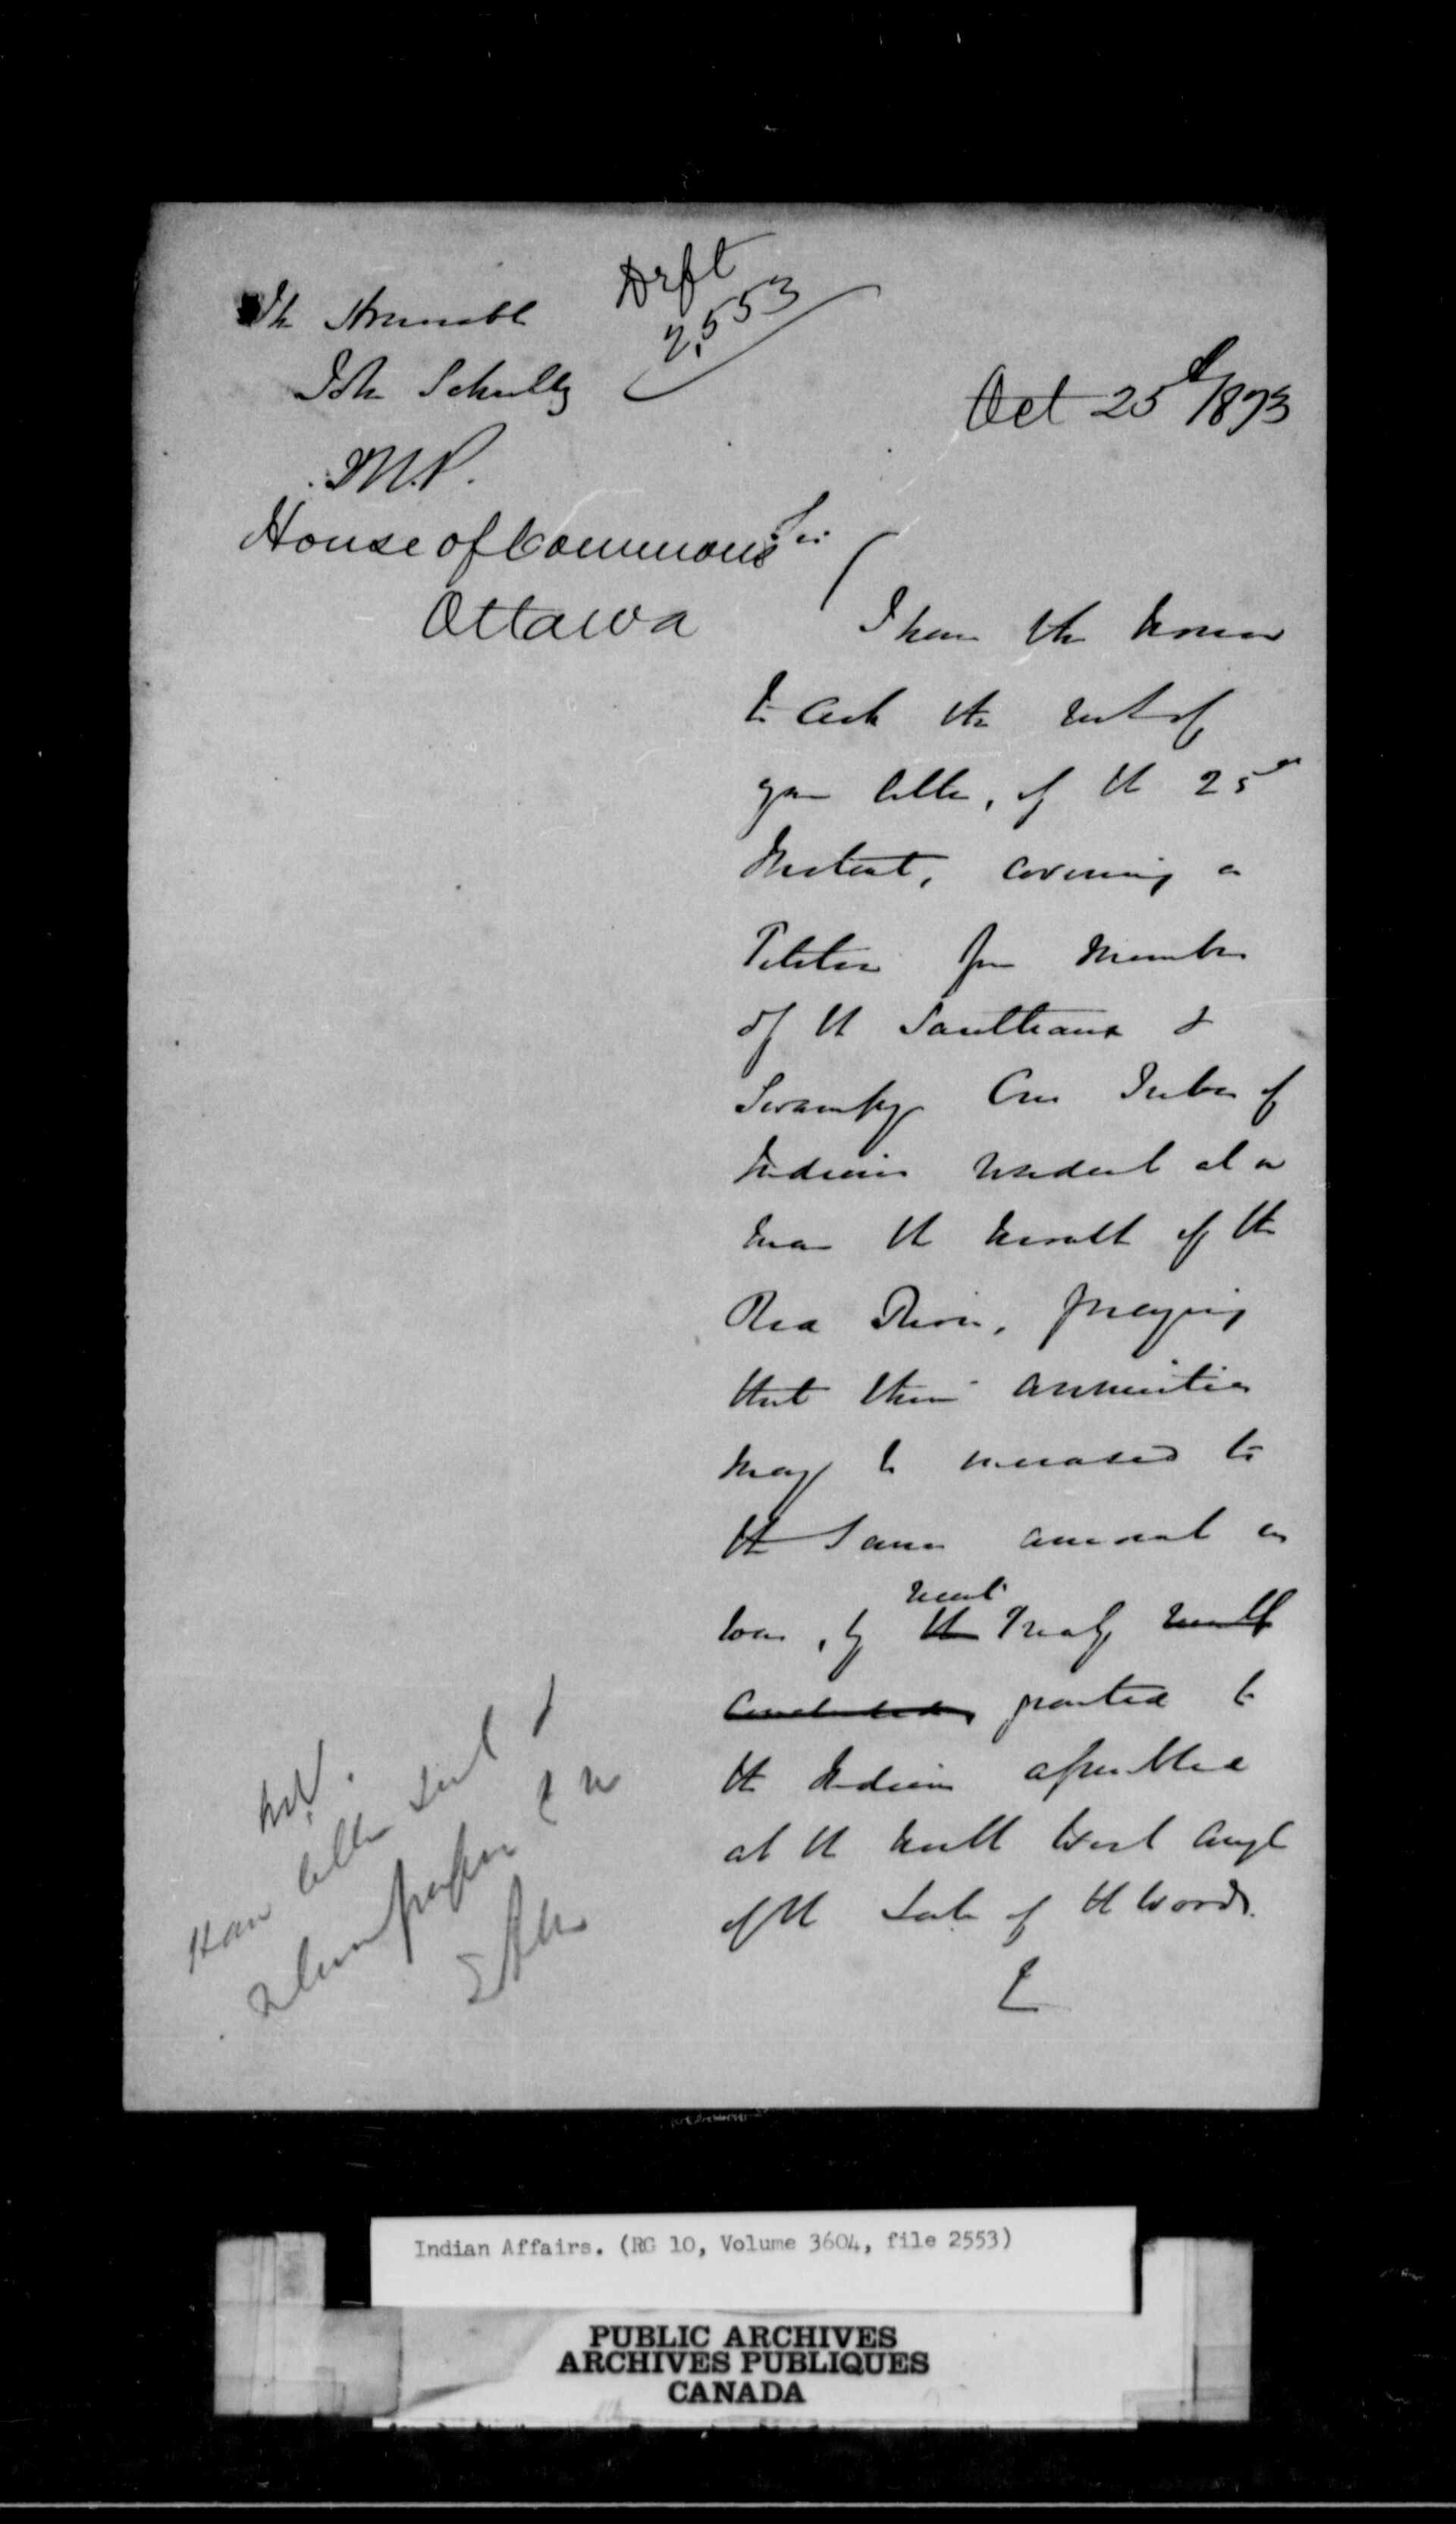 Drft
2553
The Honorable
John Schultz
M.P.
House of Commons
Ottawa
Oct 25th 1873
Sir
I have the honor
to ack the rect of
your letter, of the 25th
Instant, covering a
Petition from Members
of the Saulteaux &
Swampy Cree Tribes of
Indians resident at or
near the mouth of the
Red River, praying
that their annuities
may be increased to
the same amount as
was, by the recent Treaty
concluded, granted to
the Indians assembled
at the North West Angle
of the Lake of the Woods.
Have letter sent &
return papers to me
Indian Affairs. (RG 10, Volume 3604, file 2553)
PUBLIC ARCHIVES
ARCHIVES PUBLIQUES
CANADA